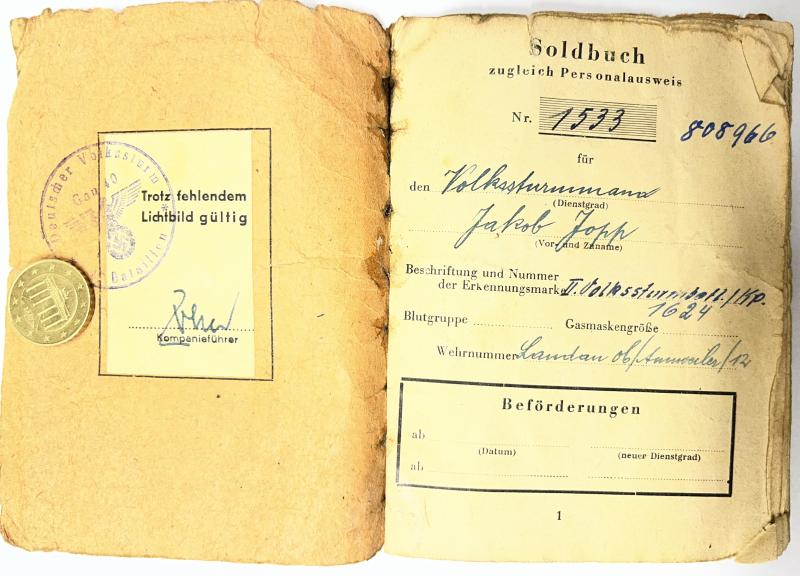 Deutscher Volkssturm
Gau 40
Bataillon
Trotz fehlendem
Lichtbild gültig
Kompanieführer
Soldbuch
zugleich Personalausweis
Nr. 1533 808966
für
den Volkssturmmann
(Dienstgrad)
Jakob Jopp
(Vor- und Zuname)
Beschriftung und Nummer
der Erkennungsmarke II. Volkssturmbatl./Kp.
1624
Blutgruppe Gasmaskengröße
Wehrnummer Landau /Annweiler/12
Beförderungen
ab
(Datum) (neuer Dienstgrad)
ab
1